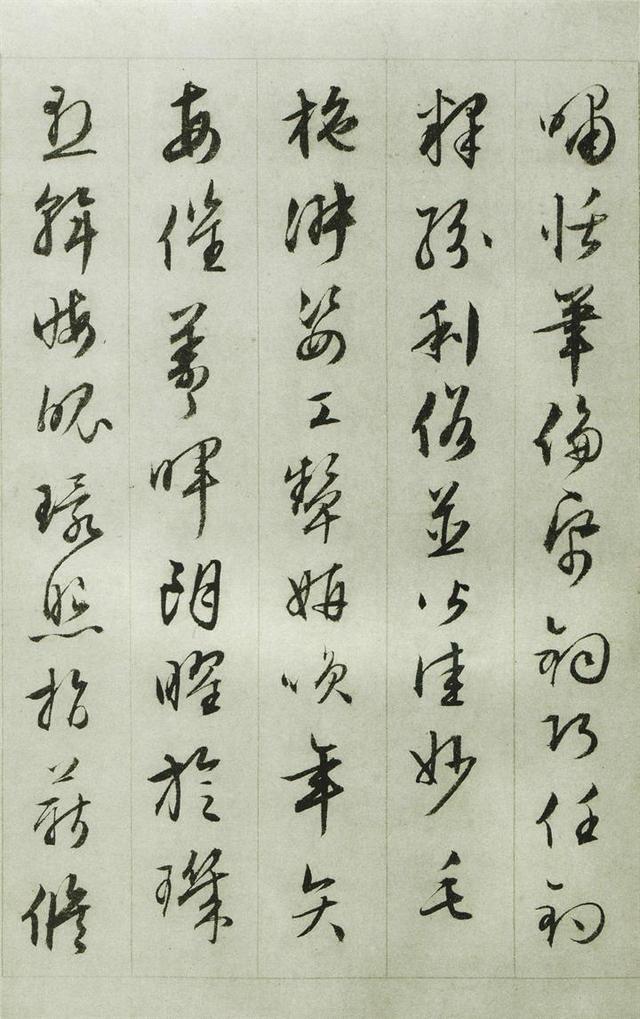 嘯恬筆倫帋鈞巧任釣
釋紛利俗並皆佳妙毛
施淑姿工顰妍咲年矢
每催羲暉朗曜旋璣
懸斡晦魄環照指薪修